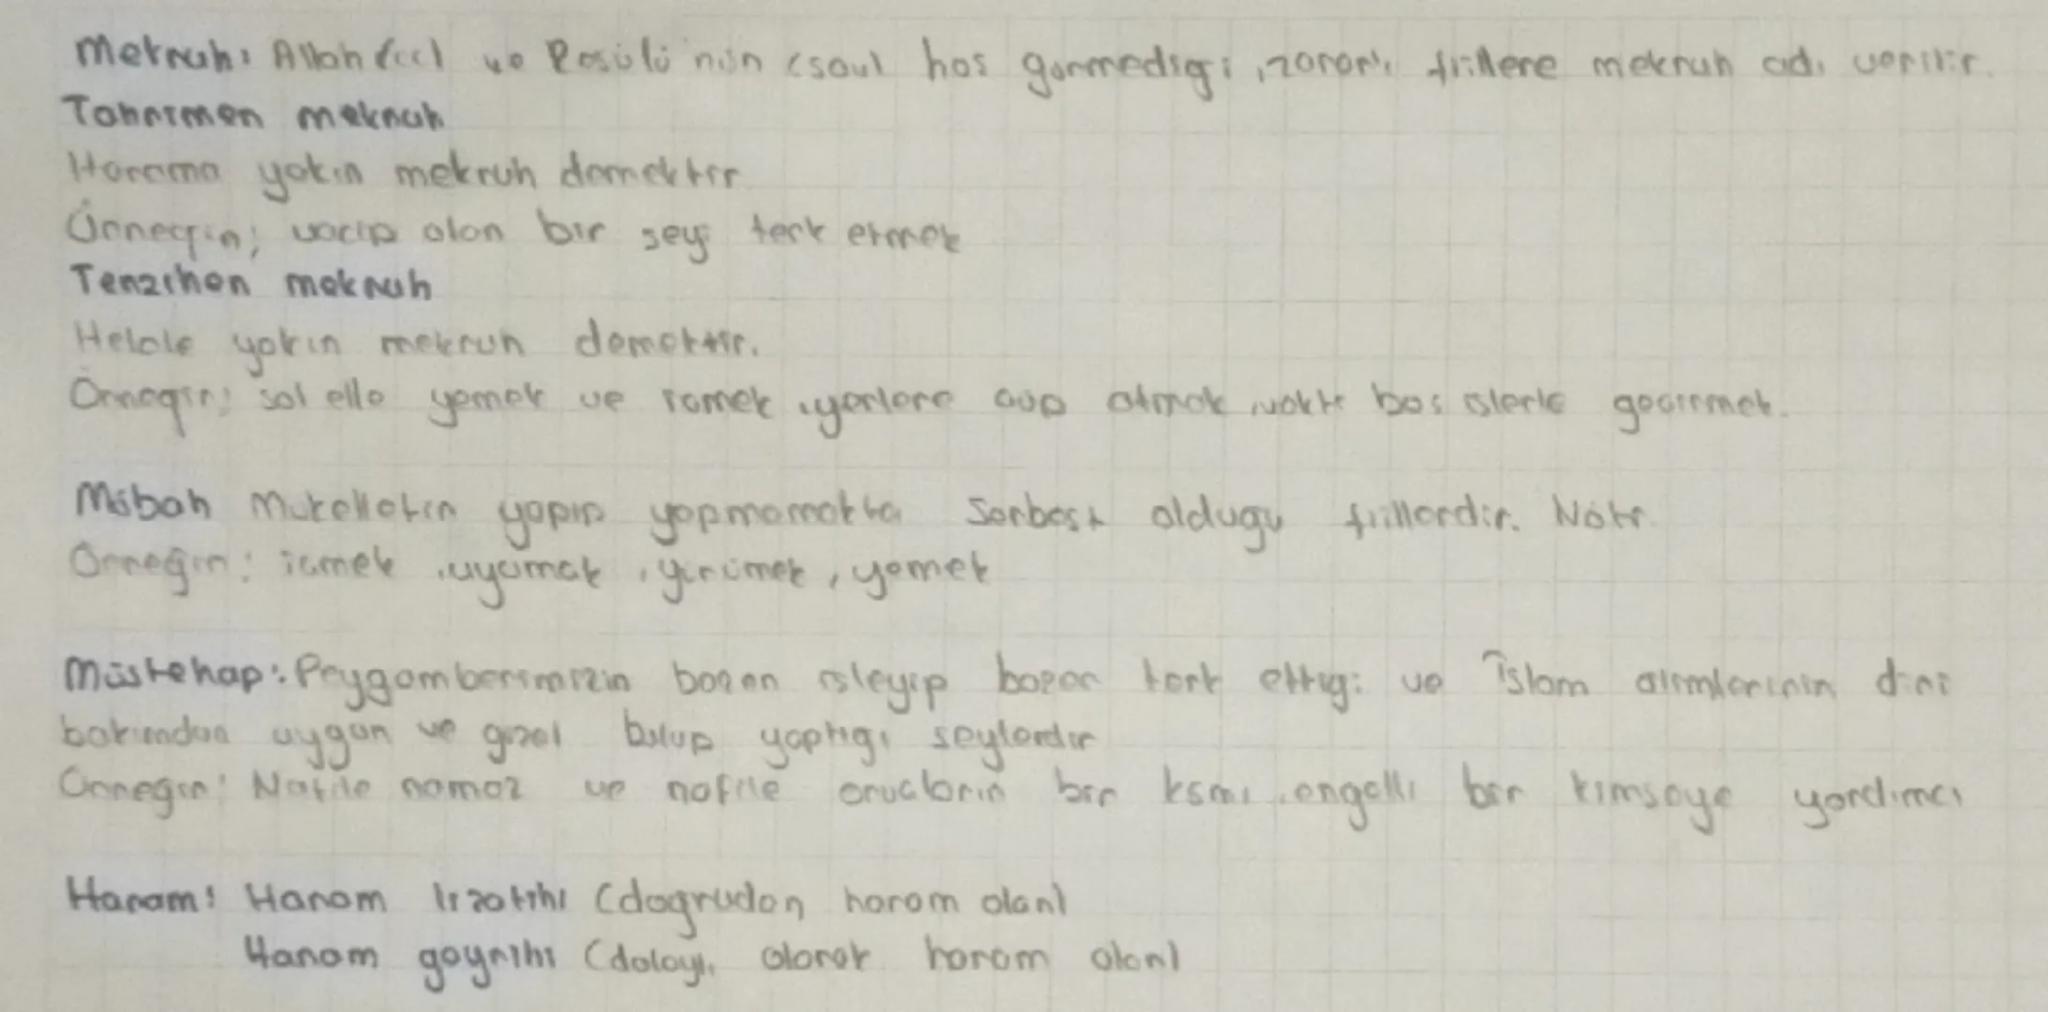 Mekruh: Allah (cc) ve Resülü'nün (sav) hoş görmediği, zararlı fiillere mekruh adı verilir.
Tahrimen mekruh
Harama yakın mekruh demektir
Örneğin; vacip olan bir şeyi terk etmek
Tenzihen mekruh
Helale yakın mekruh demektir.
Örneğin; sol elle yemek ve içmek, yerlere çöp atmak, vakti boş işlerle geçirmek.
Mübah Mükellefin yapıp yapmamakta serbest olduğu fiillerdir. Nötr
Örneğin: içmek, uyumak, yürümek, yemek
Müstehap: Peygamberimizin bazen işleyip bazen terk ettiği ve İslam alimlerinin dini
bakımdan uygun ve güzel bulup yaptığı şeylerdir
Örneğin: Nafile namaz ve nafile oruçların bir kısmı, engelli bir kimseye yardımcı
Haram: Haram lizatihi (doğrudan haram olan)
Haram gayrihi (dolaylı olarak haram olan)